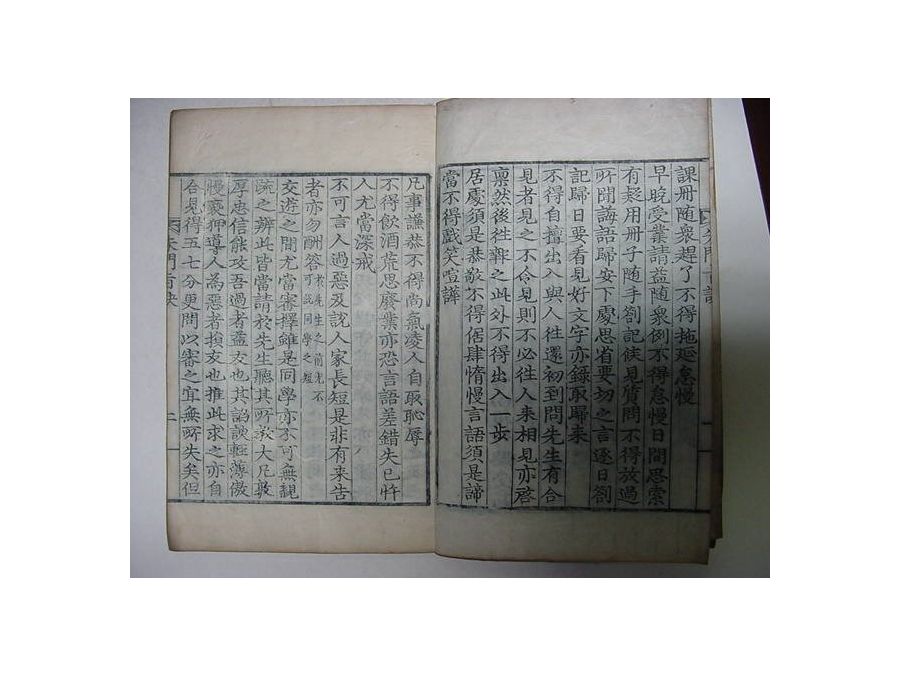 課冊隨衆趕了不得拖延怠慢
早晚受業請益隨衆例不得怠慢日間思索
有疑用冊子隨手劄記候見質問不得放過
所聞誨語歸安下處思省要切之言逐日劄
記歸日要看見好文字亦錄取歸来
不得自擅出入與人往還初到問先生有合
見者見之不合見則不必往人来相見亦啓
禀然後往報之此外不得出入一步
居處須是恭敬不得倨肆惰慢言語須是諦
當不得戲笑喧譁
凡事謙恭不得尚氣凌人自取恥辱
不得飲酒荒思廢業亦恐言語差錯失己忤
人尤當深戒
不可言人過惡及說人家長短是非有来告
者亦勿酬答於先生之前尤不可說同學之短
交遊之間尤當審擇雖是同學亦不可無親
疏之辨此皆當請於先生聽其所教大凡敦
厚忠信能攻吾過者益友也其諂諛輕薄傲
慢褻狎導人為惡者損友也推此求之亦自
合見得五七分更問以審之宜無所失矣但
二